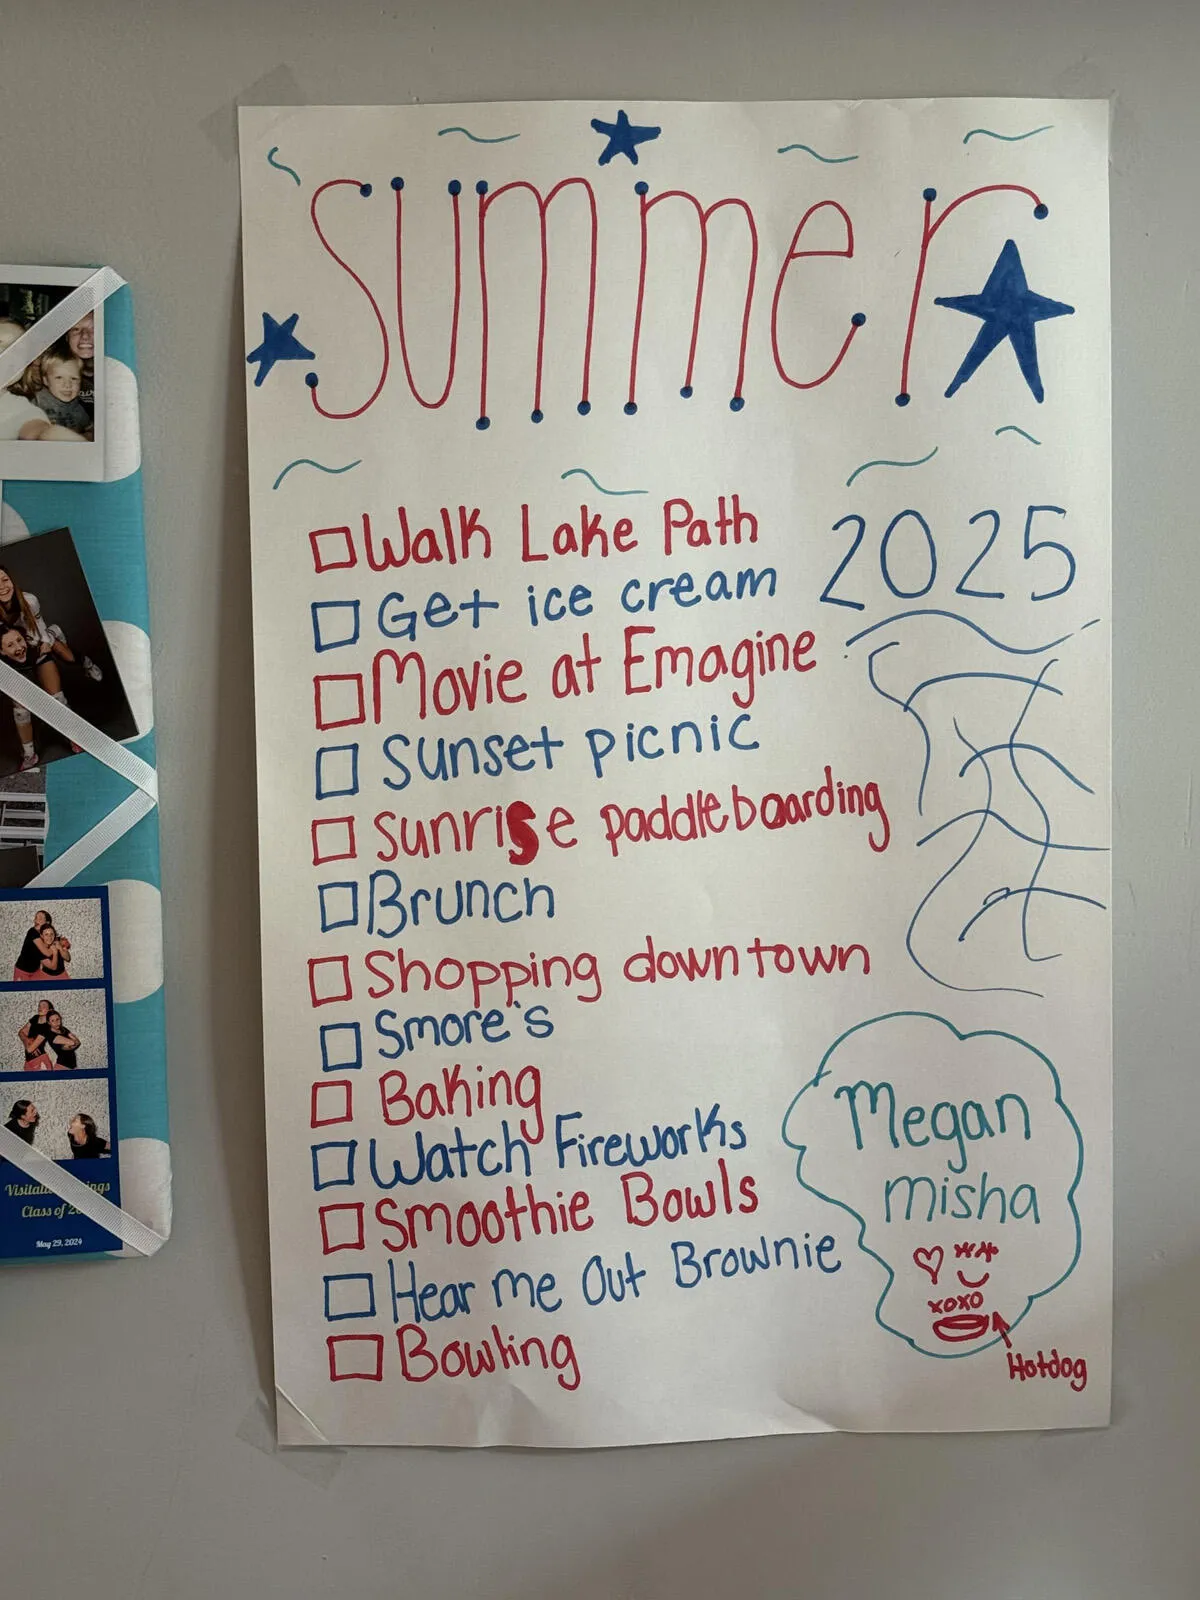 summer
2025
Walk Lake Path
Get ice cream
Movie at Emagine
sunset picnic
sunrise paddleboarding
Brunch
Shopping downtown
Smore's
Baking
Watch Fireworks
Smoothie Bowls
Hear me Out Brownie
Bowling
Megan
misha
xoxo
Hotdog
Class of
May 29, 2024